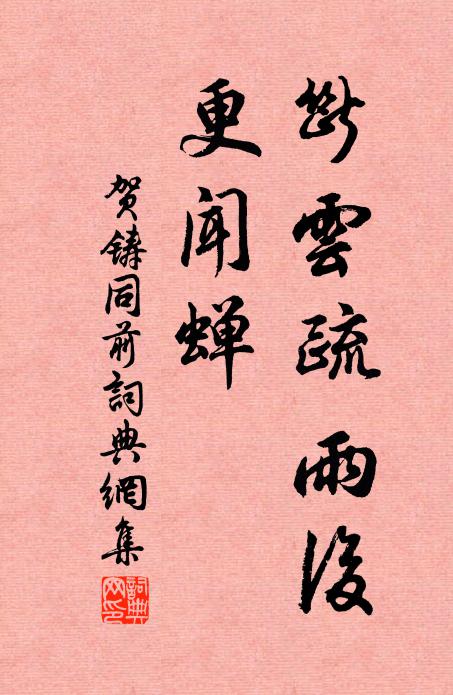 斷雲疏雨後
更闻蝉
贺铸同前詞典網集
詞典网印